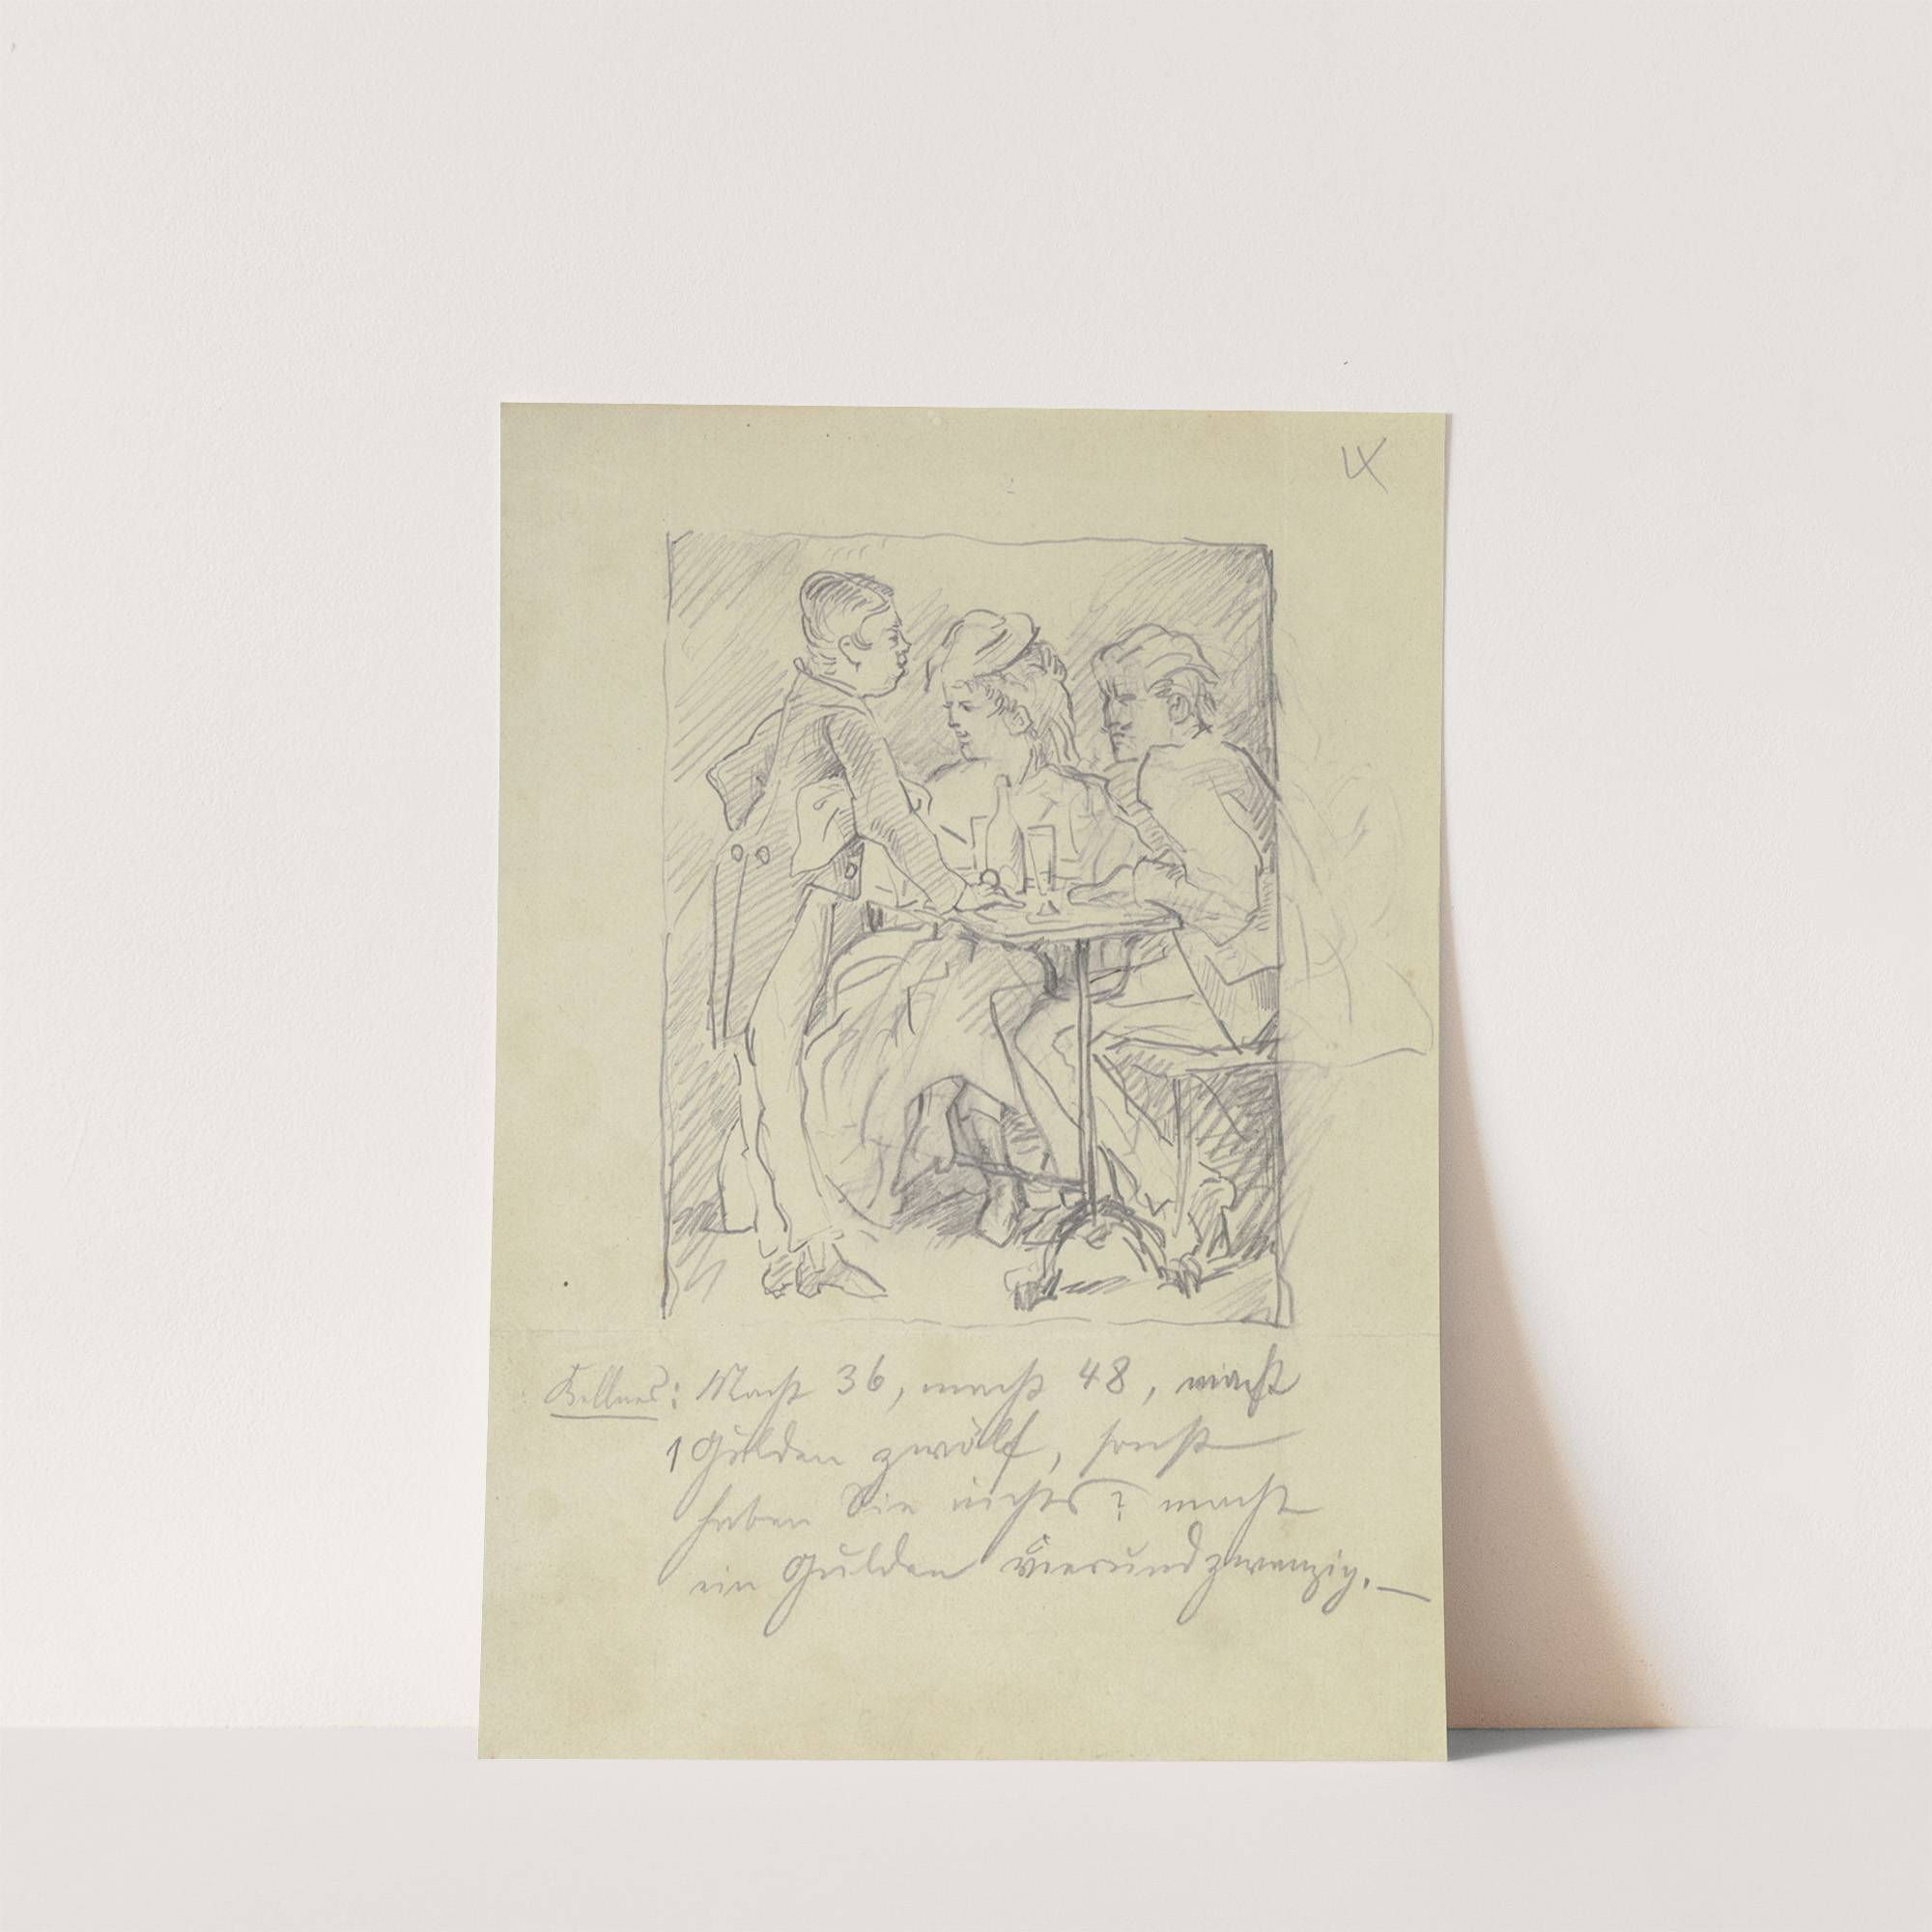 LX
Kellner: Macht 36, macht 48, macht
1 Gulden zwölf, sonst
haben Sie nichts? macht
ein Gulden vierundzwanzig.—